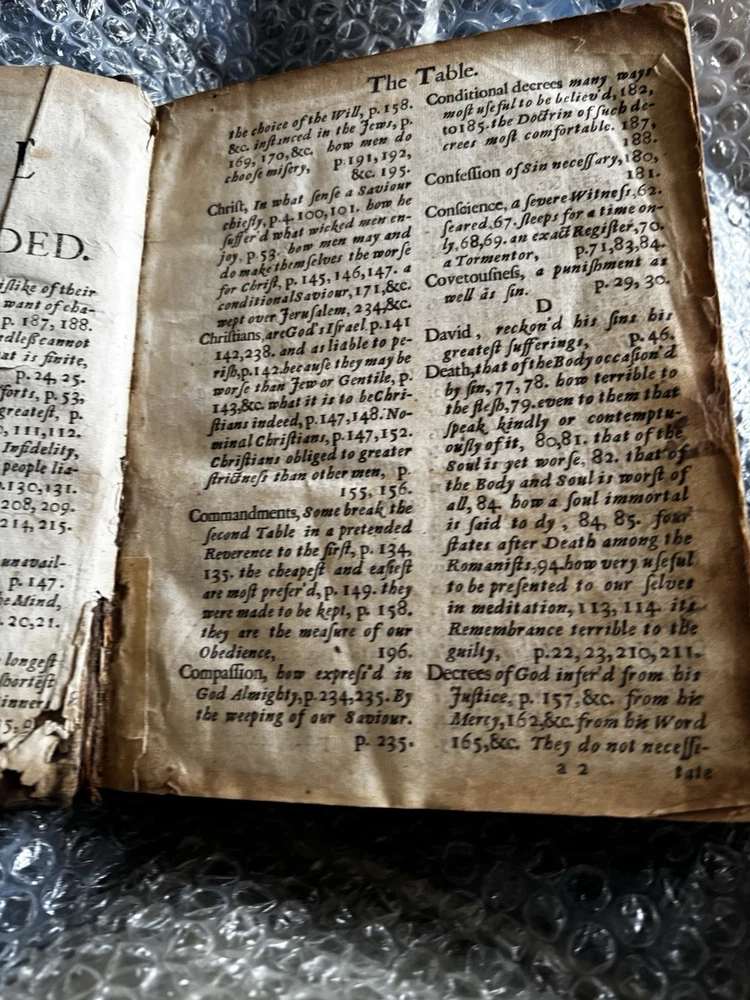 E
DED.
islike of their
want of cha-
p. 187, 188.
dless cannot
at is finite,
p. 24, 25.
forts, p. 53,
greatest, p.
0, 111, 112.
Infidelity,
people lia-
p.130,131.
208, 209.
214, 215.
unavail-
p. 147.
he Mind,
. 20,21.
longest
shortest
inner
The Table.
the choice of the Will, p. 158.
&c. inſtanced in the Jews, p.
169, 170, &c. how men do
chooſe miſery, p. 191, 192,
&c. 195.
Chriſt, In what ſenſe a Saviour
chiefly, p. 4. 100, 101. how he
ſuffer'd what wicked men en-
joy. p. 53. how men may and
do make themſelves the worſe
for Chriſt, p. 145, 146, 147. a
conditional Saviour, 171, &c.
wept over Jeruſalem, 234, &c.
Chriſtians, are God's Iſrael p. 141
142, 238. and as liable to pe-
riſh, p. 142. becauſe they may be
worſe than Jew or Gentile, p.
143, &c. what it is to be Chri-
ſtians indeed, p. 147, 148. No-
minal Chriſtians, p. 147, 152.
Chriſtians obliged to greater
ſtrictneſs than other men, p.
155, 156.
Commandments, Some break the
ſecond Table in a pretended
Reverence to the firſt, p. 134,
135. the cheapeſt and eaſieſt
are moſt prefer'd, p. 149. they
were made to be kept, p. 158.
they are the meaſure of our
Obedience, 196.
Compaſſion, how expreſs'd in
God Almighty, p. 234, 235. By
the weeping of our Saviour.
p. 235.
Conditional decrees many ways
moſt uſeful to be believ'd, 182,
to 185. the Doctrin of ſuch de-
crees moſt comfortable. 187,
188.
Confeſſion of Sin neceſſary, 180,
181.
Conſcience, a ſevere Witneſs, 62.
ſeared, 67. ſleeps for a time on-
ly, 68, 69. an exact Regiſter, 70.
a Tormentor, p. 71, 83, 84.
Covetouſneſs, a puniſhment as
well as ſin. p. 29, 30.
D
David, reckon'd his ſins his
greateſt ſufferings, p. 46.
Death, that of the Body occaſion'd
by ſin, 77, 78. how terrible to
the fleſh, 79. even to them that
ſpeak kindly or contemptu-
ouſly of it, 80, 81. that of the
Soul is yet worſe, 82. that of
the Body and Soul is worſt of
all, 84. how a ſoul immortal
is ſaid to dy, 84, 85. four
ſtates after Death among the
Romaniſts, 94. how very uſeful
to be preſented to our ſelves
in meditation, 113, 114. its
Remembrance terrible to the
guilty, p. 22, 23, 210, 211.
Decrees of God infer'd from his
Juſtice, p. 157, &c. from his
Mercy, 162, &c. from his Word
165, &c. They do not neceſſi-
a 2 tate